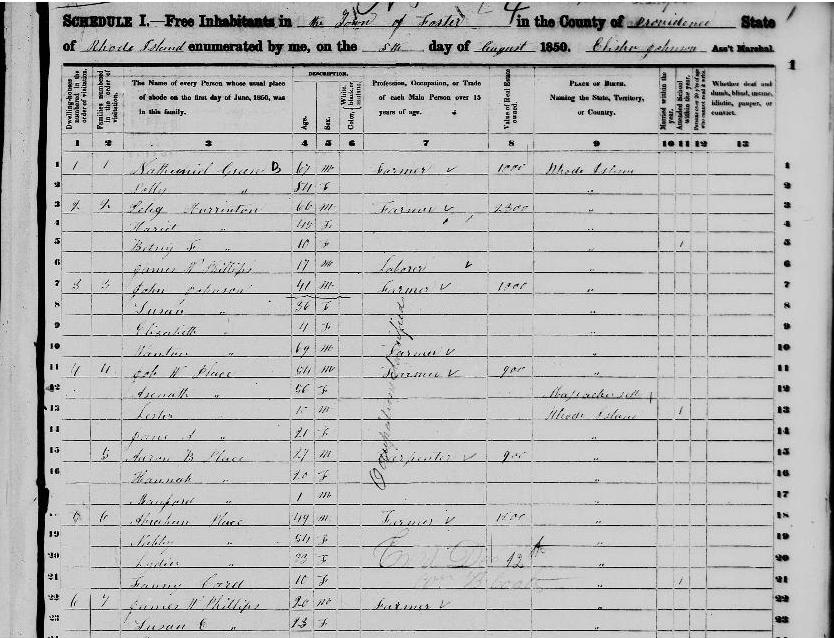 4
SCHEDULE I.—Free Inhabitants in the Town of Foster in the County of Providence State
of Rhode Island enumerated by me, on the 5th day of August 1850. Ass't Marshal.
1
Dwelling-houses numbered in the order of visitation.
Families numbered in the order of visitation.
The Name of every Person whose usual place of abode on the first day of June, 1850, was in this family.
DESCRIPTION.
Age.
Sex.
Color, White, black, or mulatto.
Profession, Occupation, or Trade of each Male Person over 15 years of age.
Value of Real Estate owned.
PLACE OF BIRTH. Naming the State, Territory, or Country.
Married within the year.
Attended School within the year.
Persons over 20 y'rs of age who cannot read & write.
Whether deaf and dumb, blind, insane, idiotic, pauper, or convict.
1 2 3 4 5 6 7 8 9 10 11 12 13
1 1 1 Nathaniel Green B 67 m Farmer ✓ 1000 Rhode Island 1
2 " 54 f " 2
3 2 2 Peleg Hurrinton 66 m Farmer ✓ 2300 " 3
4 Hariet " 45 f " 4
5 Betsey F " 10 f " 1 5
6 James W Phillips 17 m Laborer ✓ " 6
7 3 3 John Johnson 41 m Farmer ✓ 1000 " 7
8 Susan " 36 f " 8
9 Elizabeth " 4 f " 9
10 " 69 m Farmer ✓ " 10
11 4 4 Job W Place 54 m Farmer ✓ 900 " 11
12 Asenath " 56 f Massachusetts 12
13 Lester " 15 m Rhode Island 1 13
14 " 21 f " 14
15 5 Aaron B Place 27 m Carpenter ✓ 900 " 15
16 Hannah " 20 f " 16
17 " 1 m " 17
18 5 6 Abraham Place 49 m Farmer ✓ 1500 " 18
19 " 54 f " 19
20 Lydia " 23 f " 20
21 Fanny Card 10 f " 1 21
22 6 7 James W Phillips 20 m Farmer ✓ " 22
23 Susan E " 23 f " 23